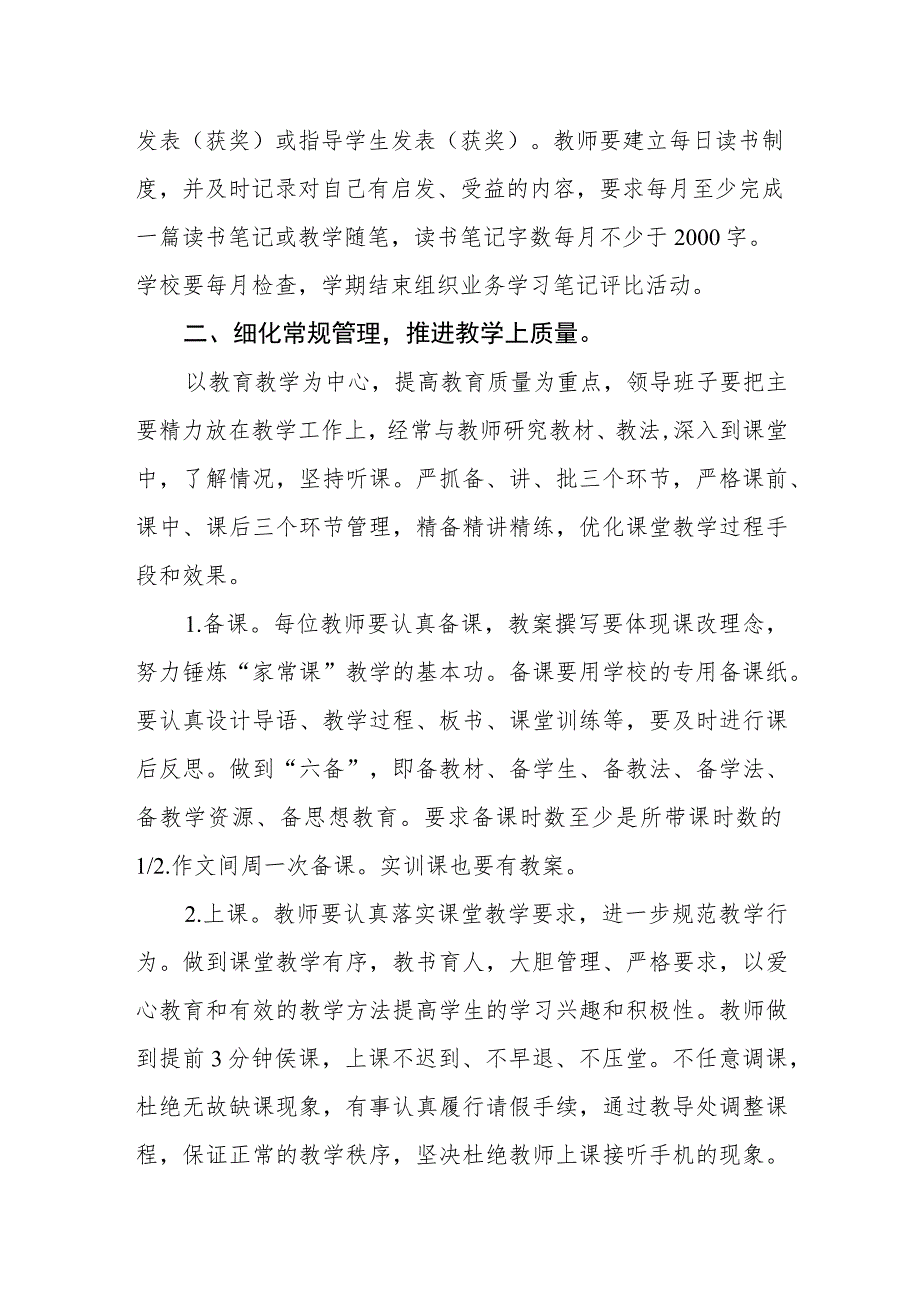 发表（获奖）或指导学生发表（获奖）。教师要建立每日读书制
度，并及时记录对自己有启发、受益的内容，要求每月至少完成
一篇读书笔记或教学随笔，读书笔记字数每月不少于 2000 字。
学校要每月检查，学期结束组织业务学习笔记评比活动。
二、细化常规管理，推进教学上质量。
以教育教学为中心，提高教育质量为重点，领导班子要把主
要精力放在教学工作上，经常与教师研究教材、教法，深入到课堂
中，了解情况，坚持听课。严抓备、讲、批三个环节，严格课前、
课中、课后三个环节管理，精备精讲精练，优化课堂教学过程手
段和效果。
1.备课。每位教师要认真备课，教案撰写要体现课改理念，
努力锤炼“家常课”教学的基本功。备课要用学校的专用备课纸。
要认真设计导语、教学过程、板书、课堂训练等，要及时进行课
后反思。做到“六备”，即备教材、备学生、备教法、备学法、
备教学资源、备思想教育。要求备课时数至少是所带课时数的
1/2.作文间周一次备课。实训课也要有教案。
2.上课。教师要认真落实课堂教学要求，进一步规范教学行
为。做到课堂教学有序，教书育人，大胆管理、严格要求，以爱
心教育和有效的教学方法提高学生的学习兴趣和积极性。教师做
到提前 3 分钟侯课，上课不迟到、不早退、不压堂。不任意调课，
杜绝无故缺课现象，有事认真履行请假手续，通过教导处调整课
程，保证正常的教学秩序，坚决杜绝教师上课接听手机的现象。